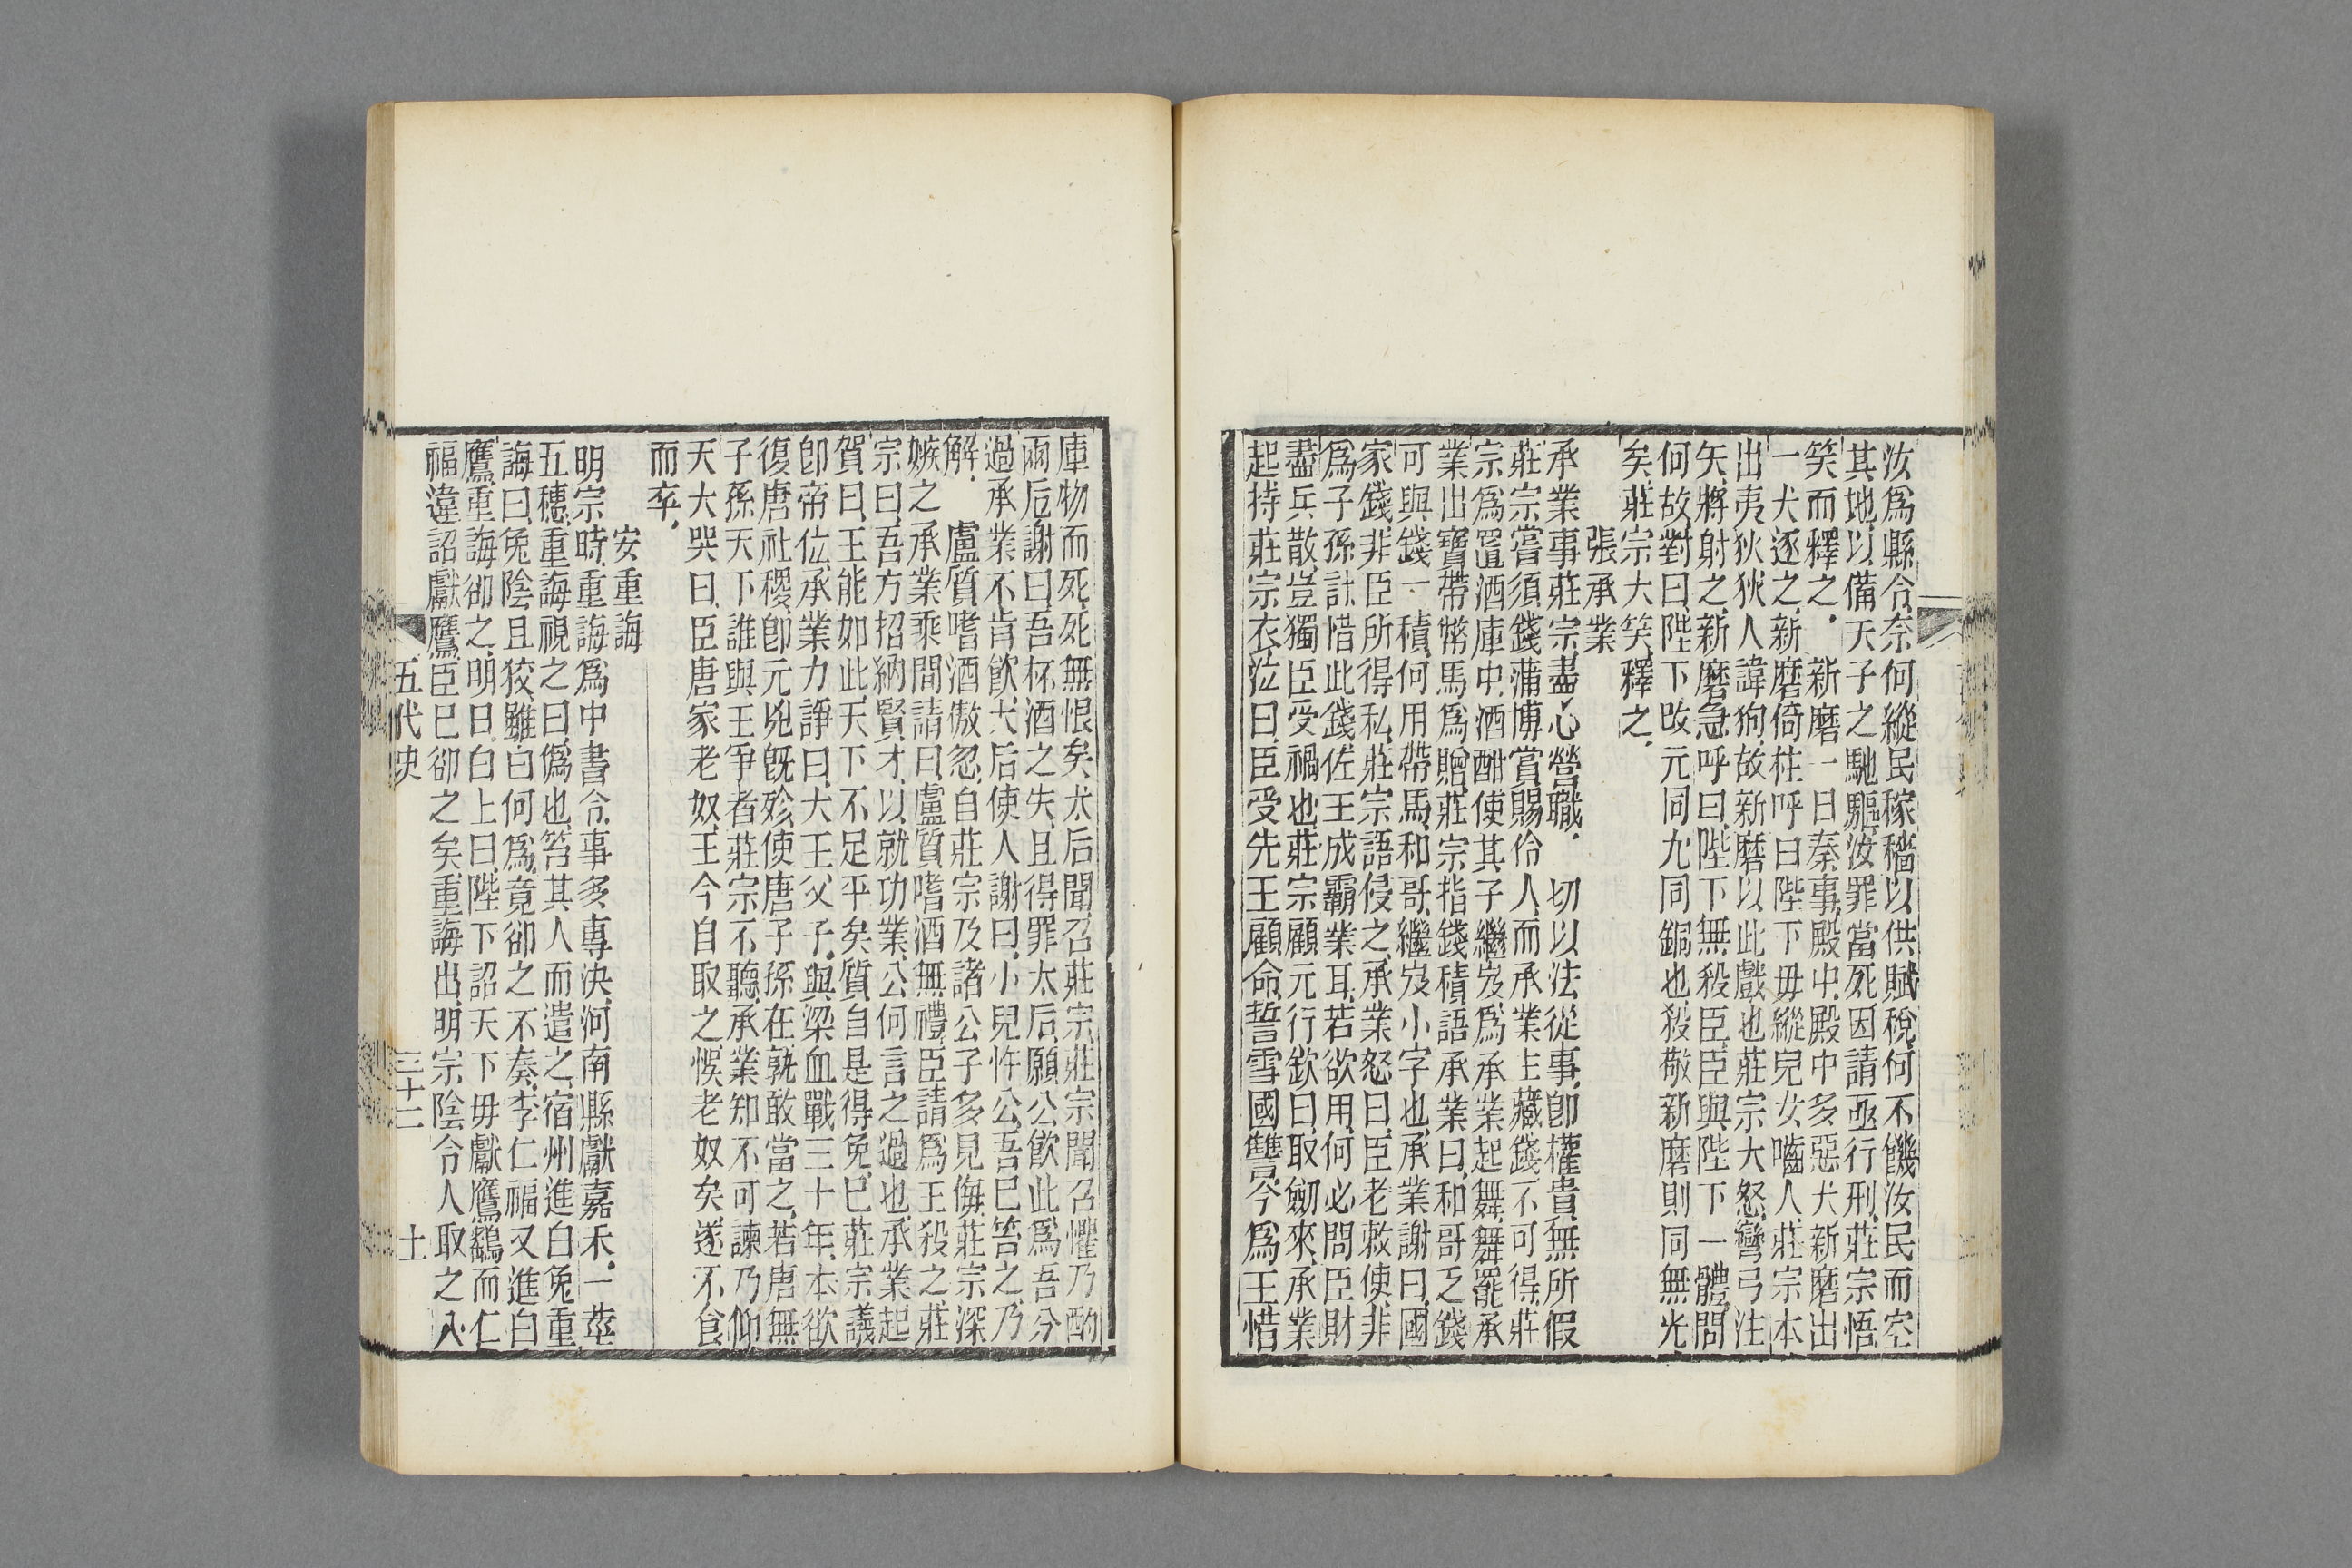 汝爲縣令、奈何縱民稼穡以供賦稅、何不饑汝民而空
其地、以備天子之馳驅、汝罪當死、因請亟行刑、莊宗悟
笑而釋之、　新磨一日奏事殿中、殿中多惡犬、新磨出
一犬逐之、新磨倚柱呼曰、陛下毋縱兒女嚙人、莊宗本
出夷狄、狄人諱狗、故新磨以此戲也、莊宗大怒、彎弓注
矢、將射之、新磨急呼曰、陛下無殺臣、臣與陛下一體、問
何故、對曰、陛下改元同九、同銅也、殺敬新磨、則同無光
矣、莊宗大笑、釋之、
張承業
承業事莊宗、盡心營職、　切以法從事、卽權貴無所假
莊宗嘗須錢蒲博賞賜伶人、而承業主藏錢、不可得、莊
宗爲置酒庫中、酒酣使其子繼岌爲承業起舞、舞罷承
業出寶帶幣馬爲贈、莊宗指錢積語承業曰、和哥乏錢
可與錢一積、何用帶馬、和哥、繼岌小字也、承業謝曰、國
家錢、非臣所得私、莊宗語侵之、承業怒曰、臣老敕使、非
爲子孫計、惜此錢、佐王成霸業耳、若欲用、何必問臣、財
盡兵散、豈獨臣受禍也、莊宗顧元行欽曰、取劒來、承業
起持莊宗衣泣曰、臣受先王顧命、誓雪國讐、今爲王惜
庫物而死、死無恨矣、太后聞召莊宗、莊宗聞召懼、乃酌
兩卮謝曰、吾杯酒之失、且得罪太后、願公飮此、爲吾分
過、承業不肯飮、太后使人謝曰、小兒忤公、吾已笞之、乃
解、　盧質嗜酒傲忽、自莊宗及諸公子多見侮、莊宗深
嫉之、承業乘間請曰、盧質嗜酒無禮、臣請爲王殺之、莊
宗曰、吾方招納賢才、以就功業、公何言之過也、承業起
賀曰、王能如此、天下不足平矣、質自是得免、已莊宗議
卽帝位、承業力諍曰、大王父子、與梁血戰三十年、本欲
復唐社稷、卽元兇旣殄、使唐子孫在、孰敢當之、若唐無
子孫、天下誰與王爭者、莊宗不聽、承業知不可諫、乃仰
天大哭曰、臣唐家老奴、王今自取之、悞老奴矣、遂不食
而卒、
安重誨
明宗時、重誨爲中書令、事多專決、河南縣獻嘉禾、一莖
五穗、重誨視之曰、僞也、笞其人而遣之、宿州進白兔、重
誨曰、兔陰且狡、雖白何爲、竟卻之不奏、李仁福又進白
鷹、重誨卻之、明日、白上曰、陛下詔天下毋獻鷹鷂、而仁
福違詔獻鷹、臣已卻之矣、重誨出、明宗陰令人取之入
五代史　三十二　十